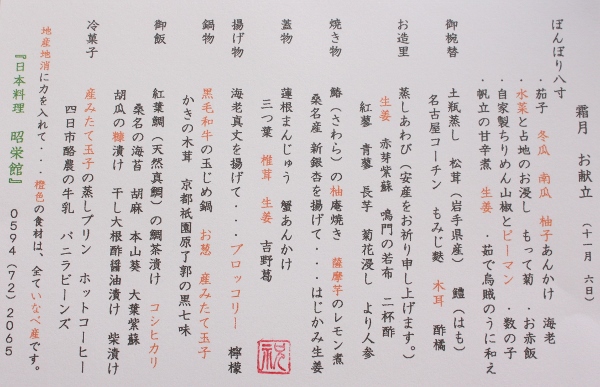 霜月　お献立　（十一月　六日）
ぼんぼり八寸
・茄子　冬瓜　南瓜　柚子あんかけ　海老
・水菜と占地のお浸し　もって菊　・お赤飯
・自家製ちりめん山椒とピーマン　・数の子
・帆立の甘辛煮　生姜　・茹で烏賊のうに和え
御椀替　土瓶蒸し　松茸（岩手県産）　鱧（はも）
名古屋コーチン　もみじ麩　木耳　酢橘
お造里　蒸しあわび（安産をお祈り申し上げます。）
生姜　赤芽紫蘇　鳴門の若布　二杯酢
紅蓼　青蓼　長芋　菊花浸し　より人参
焼き物　鰆（さわら）の柚庵焼き　薩摩芋のレモン煮
桑名産　新銀杏を揚げて・・・はじかみ生姜
蓋物　蓮根まんじゅう　蟹あんかけ
三つ葉　椎茸　生姜　吉野葛
祝
揚げ物　海老真丈を揚げて・・・ブロッコリー　檸檬
鍋物　黒毛和牛の玉じめ鍋　お葱　産みたて玉子
かきの木茸　京都祇園原了郭の黒七味
御飯　紅葉鯛（天然真鯛）の鯛茶漬け　コシヒカリ
桑名の海苔　胡麻　本山葵　大葉紫蘇
胡瓜の糠漬け　干し大根酢醤油漬け　柴漬け
冷菓子　産みたて玉子の蒸しプリン　ホットコーヒー
四日市酪農の牛乳　バニラビーンズ
地産地消に力を入れて・・・橙色の食材は、全ていなべ産です。
『日本料理　昭栄館』　0594（72）2065